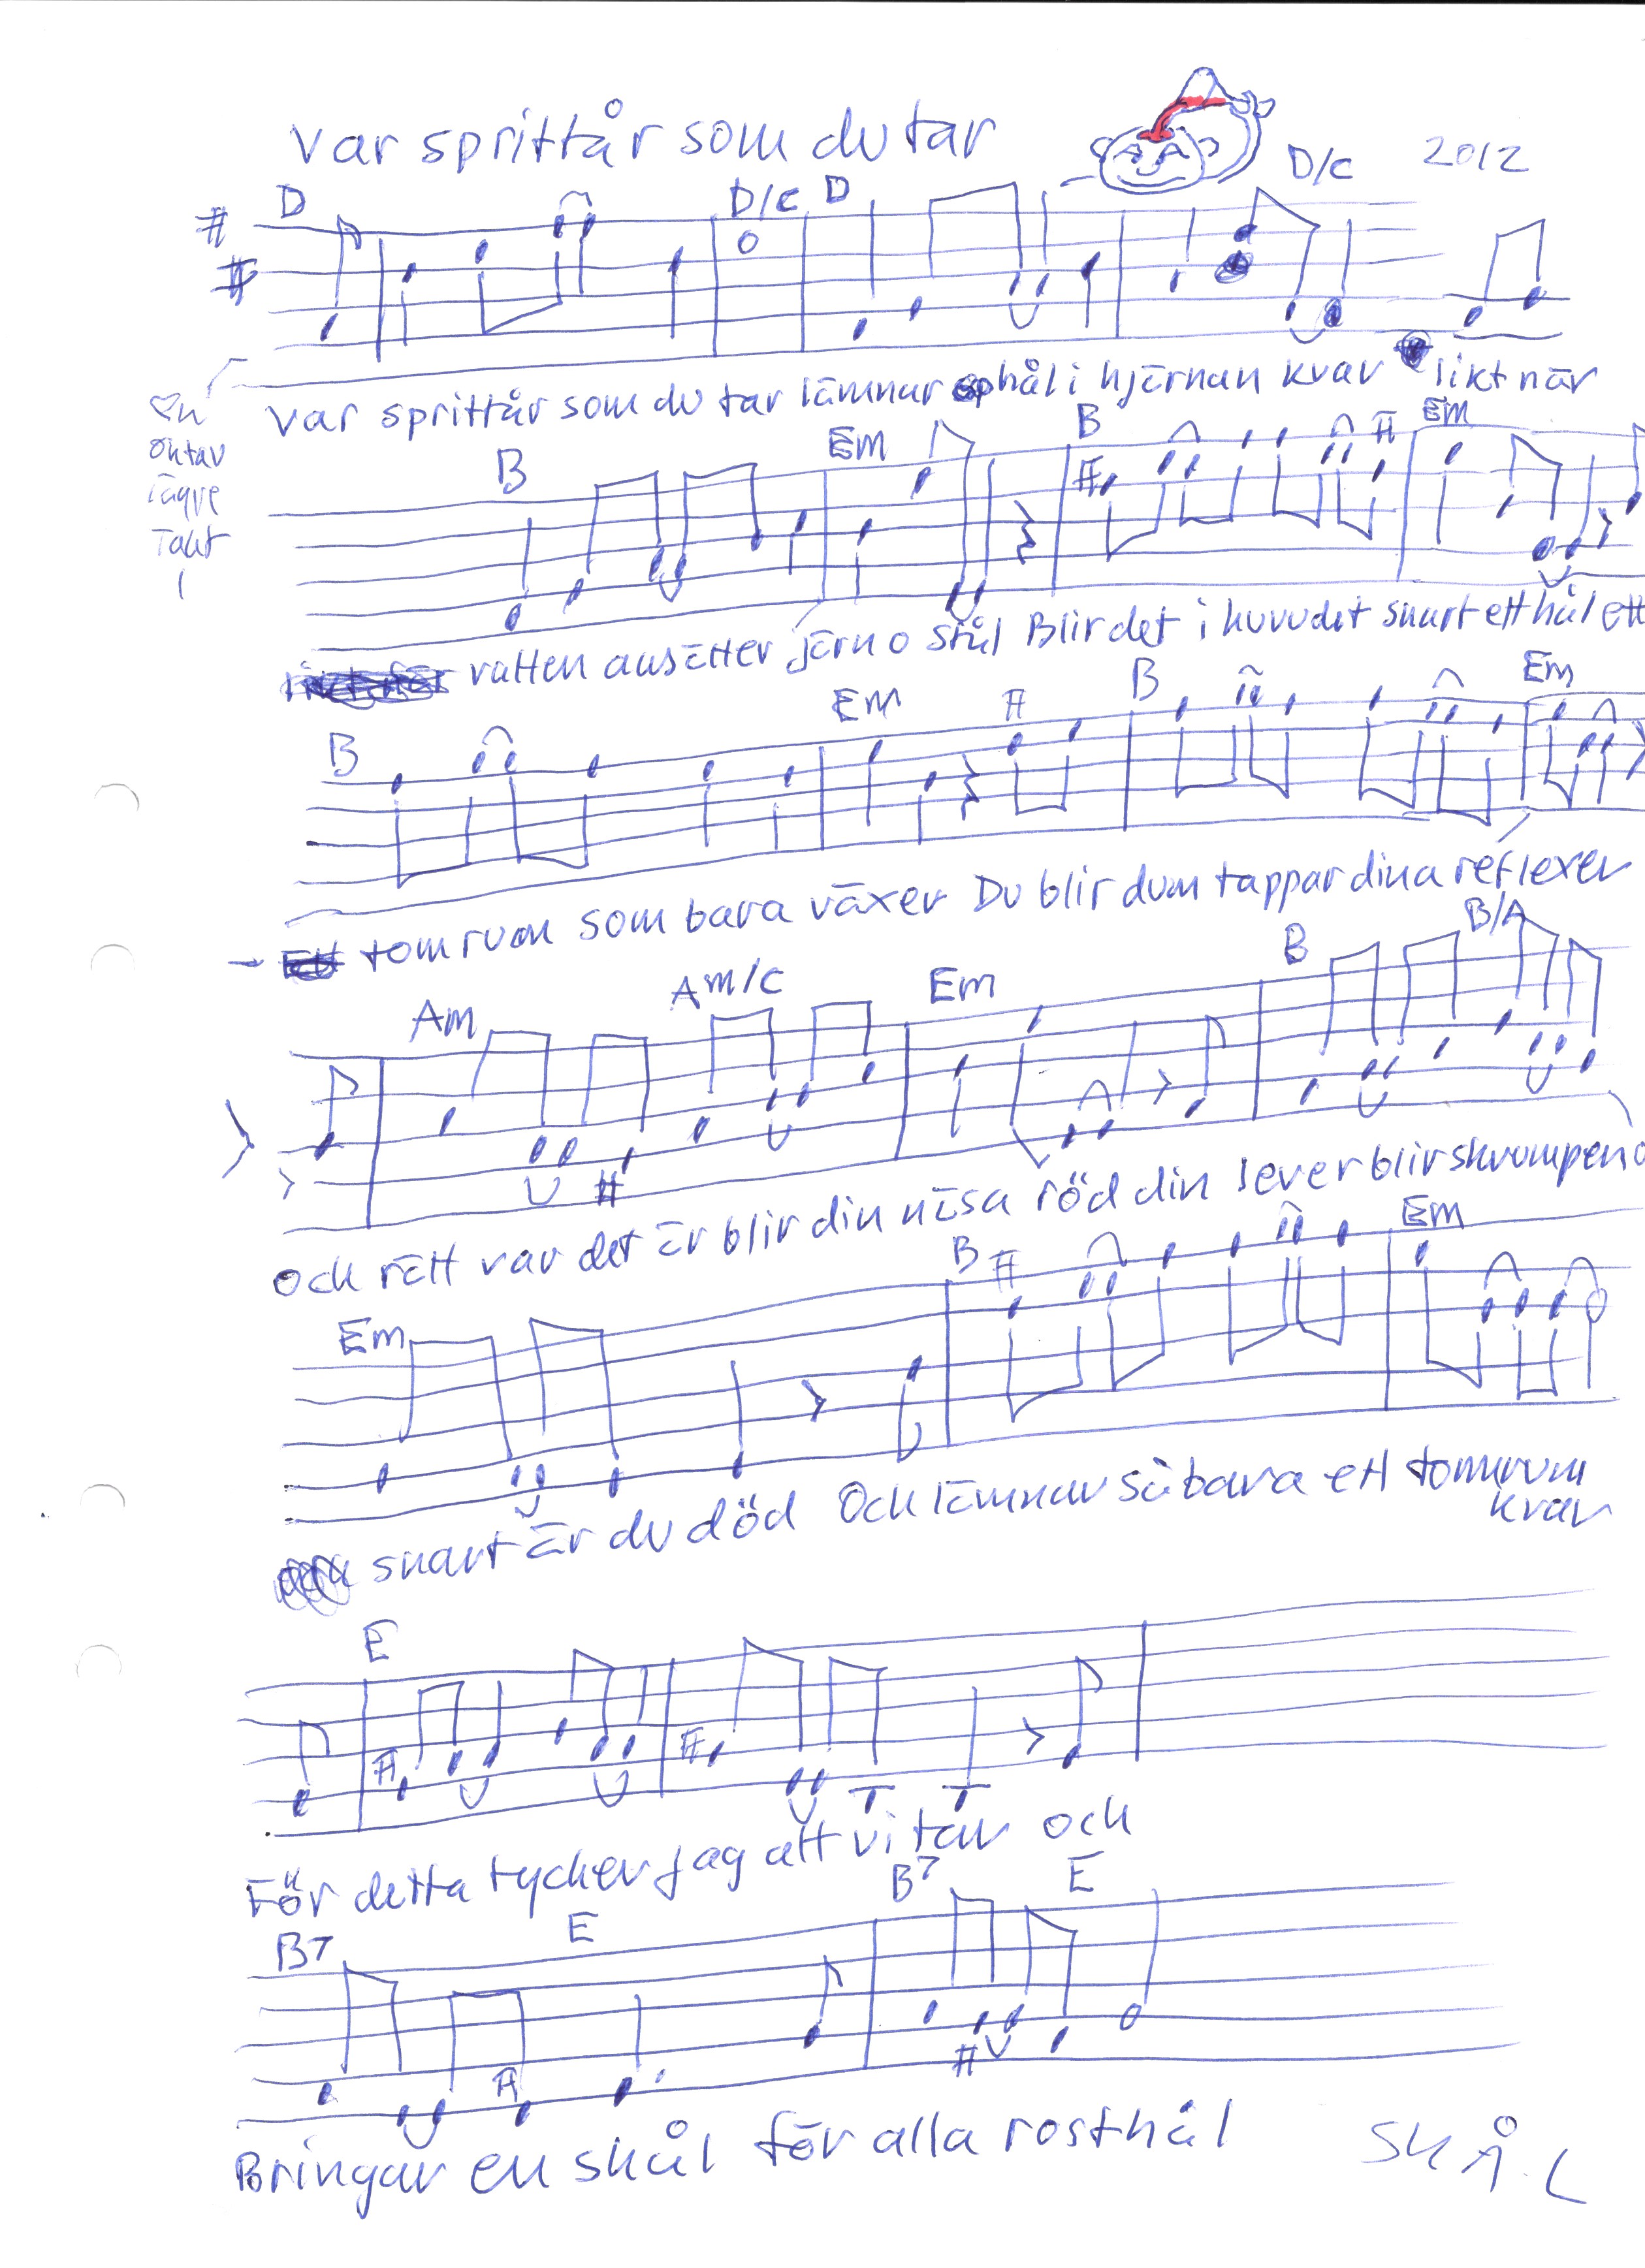 Var sprittår som du tar
2012
D D/C D D/C
Var sprittår som du tar lämnar hål i hjärnan kvar likt när
En
oktav
lägre
Takt
1
B Em B Em
vatten ansätter järn o stål Blir det i huvudet snart ett hål ett
B Em B Em
tomrum som bara växer Du blir dum tappar dina reflexer
Am Am/C Em B B/A
Och rätt var det är blir din näsa röd din lever blir skrumpen o
Em B Em
snart är du död Och lämnar så bara ett tomrum
kvar
E
För detta tycker jag att vi tar och
B7 E B7 E
Bringar en skål för alla rosthål
SKÅL